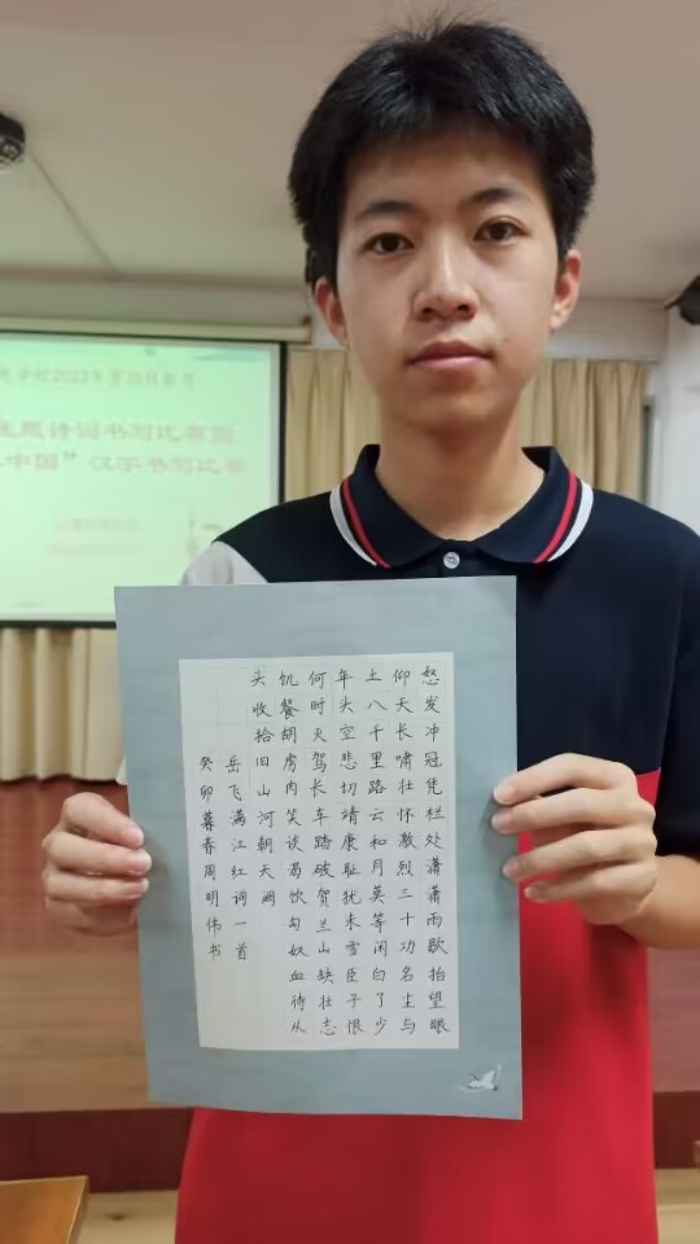 学校2023年
主题诗词书写比赛暨
中国”汉字书写比赛
怒发冲冠凭栏处潇潇雨歇抬望眼
仰天长啸壮怀激烈三十功名尘与
土八千里路云和月莫等闲白了少
年头空悲切靖康耻犹未雪臣子恨
何时灭驾长车踏破贺兰山缺壮志
饥餐胡虏肉笑谈渴饮匈奴血待从
头收拾旧山河朝天阙
岳飞满江红词一首
癸卯暮春周明伟书